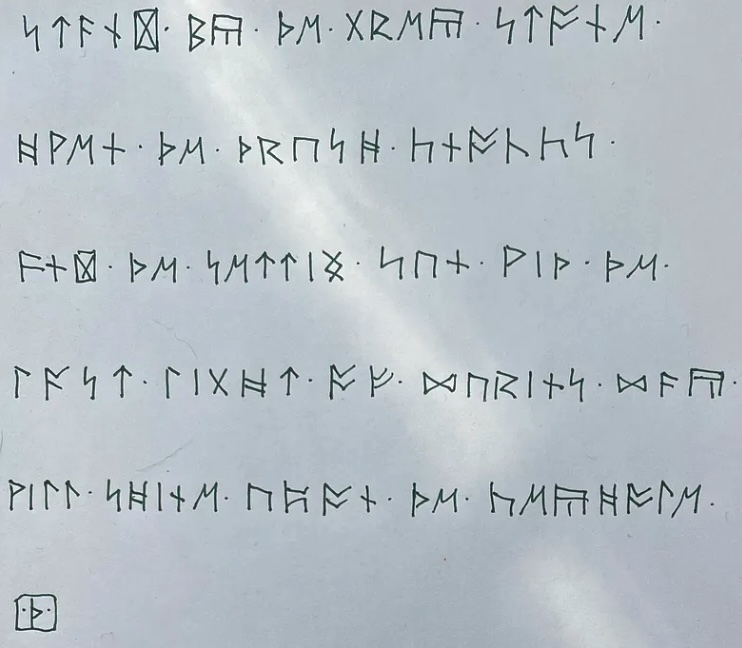 ᛋᛏᚫᚾᛞ᛫ᛒᚣ᛫ᚦᛖ᛫ᚷᚱᛖᚣ᛫ᛋᛏᚩᚾᛖ᛫
ᚻᚹᛖᚾ᛫ᚦᛖ᛫ᚦᚱᚢᛋᚻ᛫ᚳᚾᚩᚳᚳᛋ᛫
ᚫᚾᛞ᛫ᚦᛖ᛫ᛋᛖᛏᛏᛁᛝ᛫ᛋᚢᚾ᛫ᚹᛁᚦ᛫ᚦᛖ᛫
ᛚᚪᛋᛏ᛫ᛚᛁᚷᚻᛏ᛫ᚩᚠ᛫ᛞᚢᚱᛁᚾᛋ᛫ᛞᚫᚣ᛫
ᚹᛁᛚᛚ᛫ᛋᚻᛁᚾᛖ᛫ᚢᛈᚩᚾ᛫ᚦᛖ᛫ᚳᛖᚣᚻᚩᛚᛖ᛫
᛫ᚦ᛫